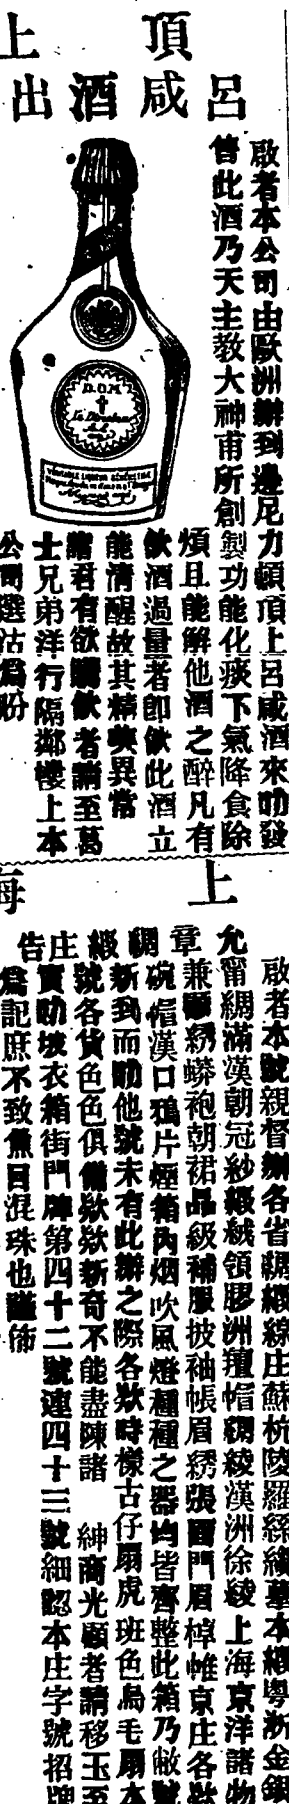 頂上
呂咸酒出
啟者本公司由歐洲辦到邊尼力頓頂上呂咸酒來叻發
售此酒乃天主教大神甫所創製功能化痰下氣降食除
煩且能解他酒之醉凡有
飲酒過量者即飲此酒立
能清醒故其精美異常
諸君有欲購飲者請至葛
士兄弟洋行隔鄰樓上本
公司選沽爲盼
D.O.M.
上海
允章綢緞庄告
啟者本號親督辦各省綢緞線庄蘇杭陵羅絲縐摹本緞粵浙金銀
甯綢滿漢朝冠紗緞絨領膠洲氊帽綢綾漢洲徐綾上海京洋諸物
兼顧綉蟒袍朝裙品級補服披袖帳眉綉張畫門眉棹帷京庄各欵
碗帽漢口鴉片煙箱內烟吹風燈種種之器均皆齊整此箱乃敝號
新到而叻他號未有此辦之際各欵時樣古仔扇虎班色鳥毛扇本
號各貨色色俱備欵欵新奇不能盡陳諸 紳商光顧者請移玉至
寶叻坡衣箱街門牌第四十二號連四十三號細認本庄字號招牌
爲記庶不致魚目混珠也謹佈